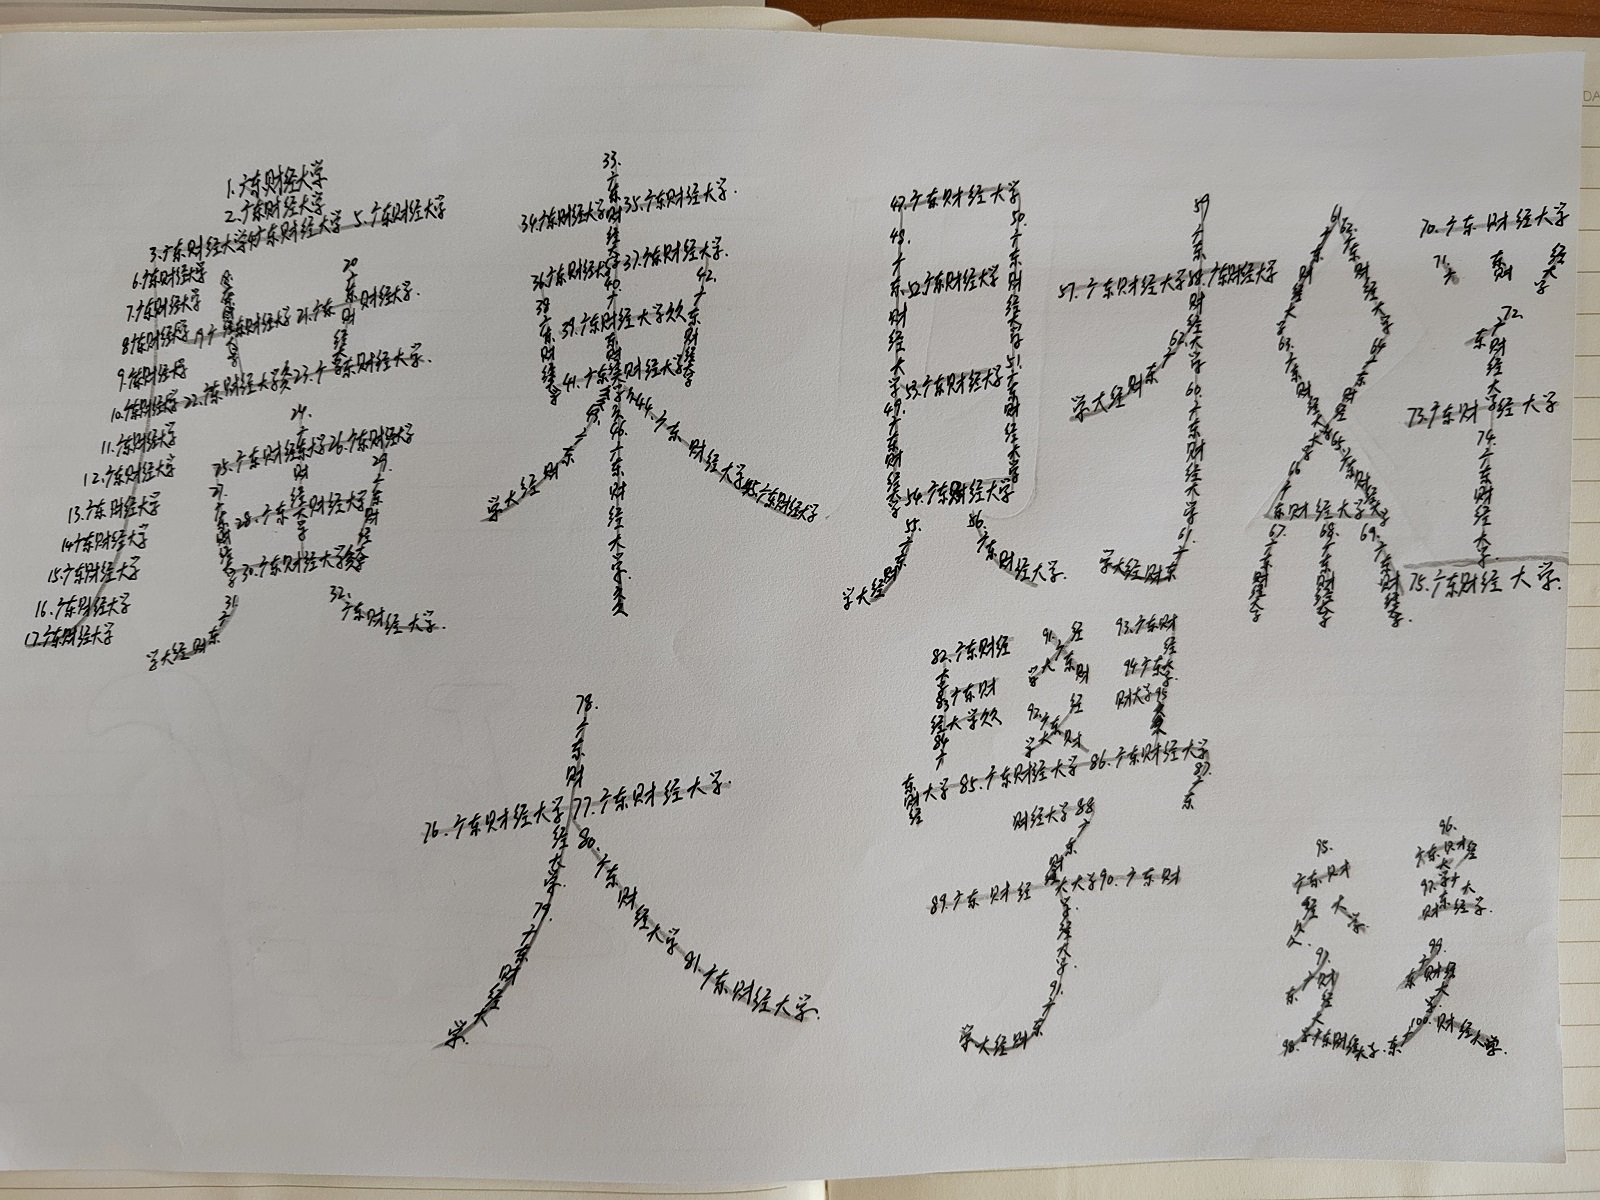 1.广东财经大学
2.广东财经大学
3.广东财经大学4广东财经大学 5.广东财经大学
6.广东财经大学
7.广东财经大学
8广东财经大学
9.广东财经大学
10.广东财经大学
11.广东财经大学
12.广东财经大学
13.广东财经大学
14广东财经大学
15.广东财经大学
16.广东财经大学
17.广东财经大学
20.广东财经大学
21.广东财经大学
23.广东财经大学
24.广东财经大学
25.广东财经大学26.广东财经大学
27.广东财经大学
28.广东财经大学
29.广东财经
30.广东财经大学
31.广东财经大学
32.广东财经大学.
33.广东财经大学
34.广东财经大学35.广东财经大学.
36.广东财经大学37.广东财经大学.
38广东财经大学
39.广东财经大学
40.广东财经大学
41.广东财经大学
42.广东财经大学
43.广东财经大学
44.广东财经大学45.广东财经大学
46.广东财经大学
47.广东财经大学
48.广东财经大学
49.广东财经大学
50.广东财经大学
51.广东财经大学
52.广东财经大学
53.广东财经大学
54.广东财经大学
55.广东财经大学
56.广东财经大学.
57.广东财经大学58.广东财经大学
59广东财经大学
60.广东财经大学
61.广东财经大学
62.广东财经大学
61.广财经大学
62.广东财经大学
63.广东财经大学
64.广东财经大学
65.广东财经大学
66.广东财经大学
67.广东财经大学
68.广东财经大学
69.广东财经大学.
70.广东财经大学
71.广东财经大学
72.广东财经大学
73.广东财经大学
74.广东财经大学
75.广东财经大学.
76.广东财经大学77.广东财经大学.
78.广东财经大学.
79.广东财经大学.
80.广东财经大学81.广东财经大学.
82.广东财经大学
83广东财经大学
84广东财经大学85.广东财经大学86.广东财经大学
87.广东财经大学88
广东财经大学
89.广东财经大学90.广东财经大学.
91.广东财经大学
91.广东财经大学
92.广东财经大学
93.广东财经大学
94广东财大学95
95.广东财经大学
96.广东财经大学
97.广东财经大学.
97.广东财经大学
98.广东财经大学.
99.广东财经大学
100.广东财经大学.